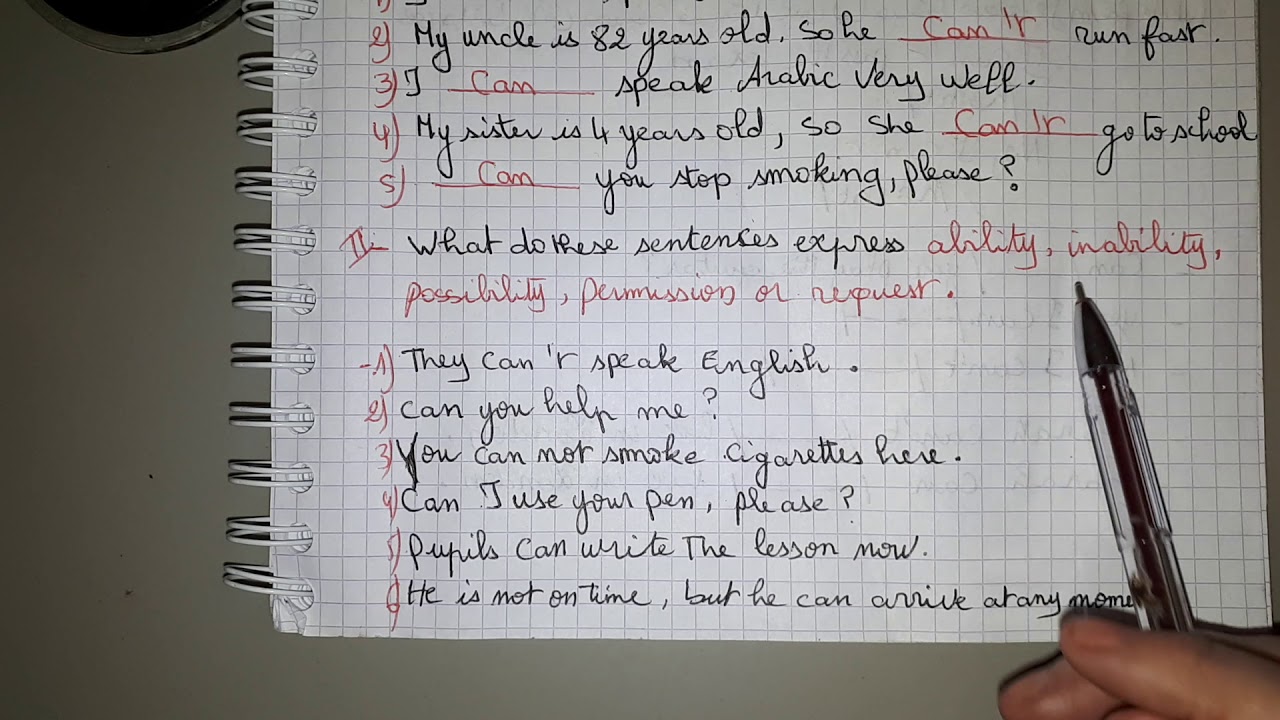 2) My uncle is 82 years old. So he Can't run fast.
3) I Can speak Arabic very well.
4) My sister is 4 years old, so she Can't go to school
5) Can you stop smoking, please?
II- What do these sentences express ability, inability,
possibility, permission or request.
-1) They can't speak English.
2) Can you help me?
3) You can not smoke cigarettes here.
4) Can I use your pen, please?
5) Pupils can write the lesson now.
6) He is not on time, but he can arrive at any mome